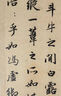 斗牛之間白露
縱一葦之所如
乎如馮虛御